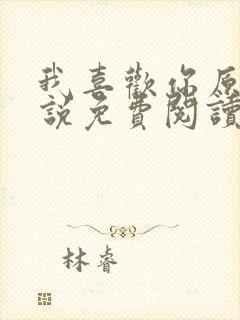 我喜歡你原
說免費閱讀
林睿